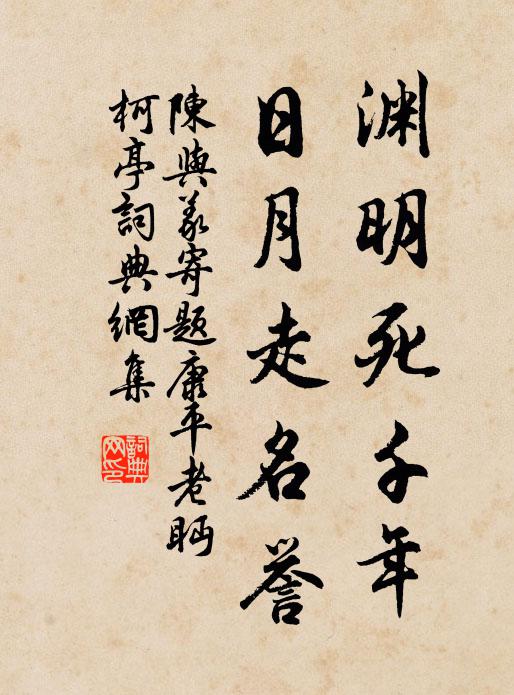 渊明死千年
日月走名誉
陳與義寄題康平老眄
柯亭詞典網集
詞典网印